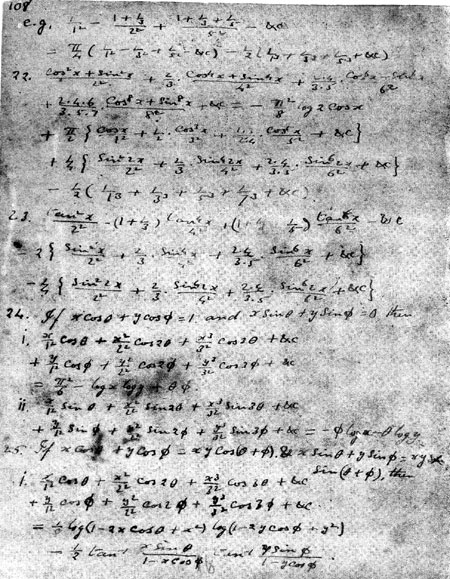 108
e.g. 1/1² - (1+1/3)/2² + (1+1/3+1/5)/ - &c
= π/4 (1/1² - 1/3² + 1/5² - &c) - 1/2 (1/1³ + 1/3³ + 1/5³ + &c)
22. (cos²x + sin²x)/2² + 2/3 · (cos⁴x + sin⁴x)/4² + (2·4)/(3·5) · /6²
+ (2·4·6)/(3·5·7) (cos⁸x + sin⁸x)/8² + &c = - π²/8 log 2cos x
+ π/2 { cos x/1² + 1/2 · cos³x/3² + cos⁵x/5² + &c }
+ 1/4 { sin²2x/2² + 2/3 · sin⁴2x/4² + (2·4)/(3·5) · sin⁶2x/6² + &c }
- 1/2 (1/1³ + 1/3³ + 1/5³ + 1/7³ + &c)
23. tan²x/2² - (1+1/3) tan⁴x/4² + (1+ 1/5) tan⁶x/6² - &c
= 2 { sin²x/2² + 2/3 · sin⁴x/4² + (2·4)/(3·5) · sin⁶x/6² + &c }
{ sin²2x/2² + 2/3 · sin⁴2x/4² + (2·4)/(3·5) · sin⁶2x/6² + &c }
24. If x cosθ + y cosφ = 1 and x sinθ + y sinφ = 0 then
i. x/1² cosθ + x²/2² cos2θ + x³/3² cos3θ + &c
+ y/1² cosφ + y²/2² cos2φ + y³/3² cos3φ + &c
= π²/6 - log x log y + θφ
ii x/1² sinθ + x²/2² sin2θ + x³/3² sin3θ + &c
+ y/1² sinφ + y²/2² sin2φ + y³/3² sin3φ + &c = -φ log x - θ log y
25. If x cosθ + y cosφ = xy cos(θ+φ), & x sinθ + y sinφ = xy
sin(θ+φ), then
i. x/1² cosθ + x²/2² cos2θ + x³/3² cos3θ + &c
+ y/1² cosφ + y²/2² cos2φ + y³/3² cos3φ + &c
= log(1-2x cosθ + x²) log(1-2y cosφ + y²)
- 1/2 tan⁻¹ x sinθ/(1-x cosθ) y sinφ/(1-y cosφ)